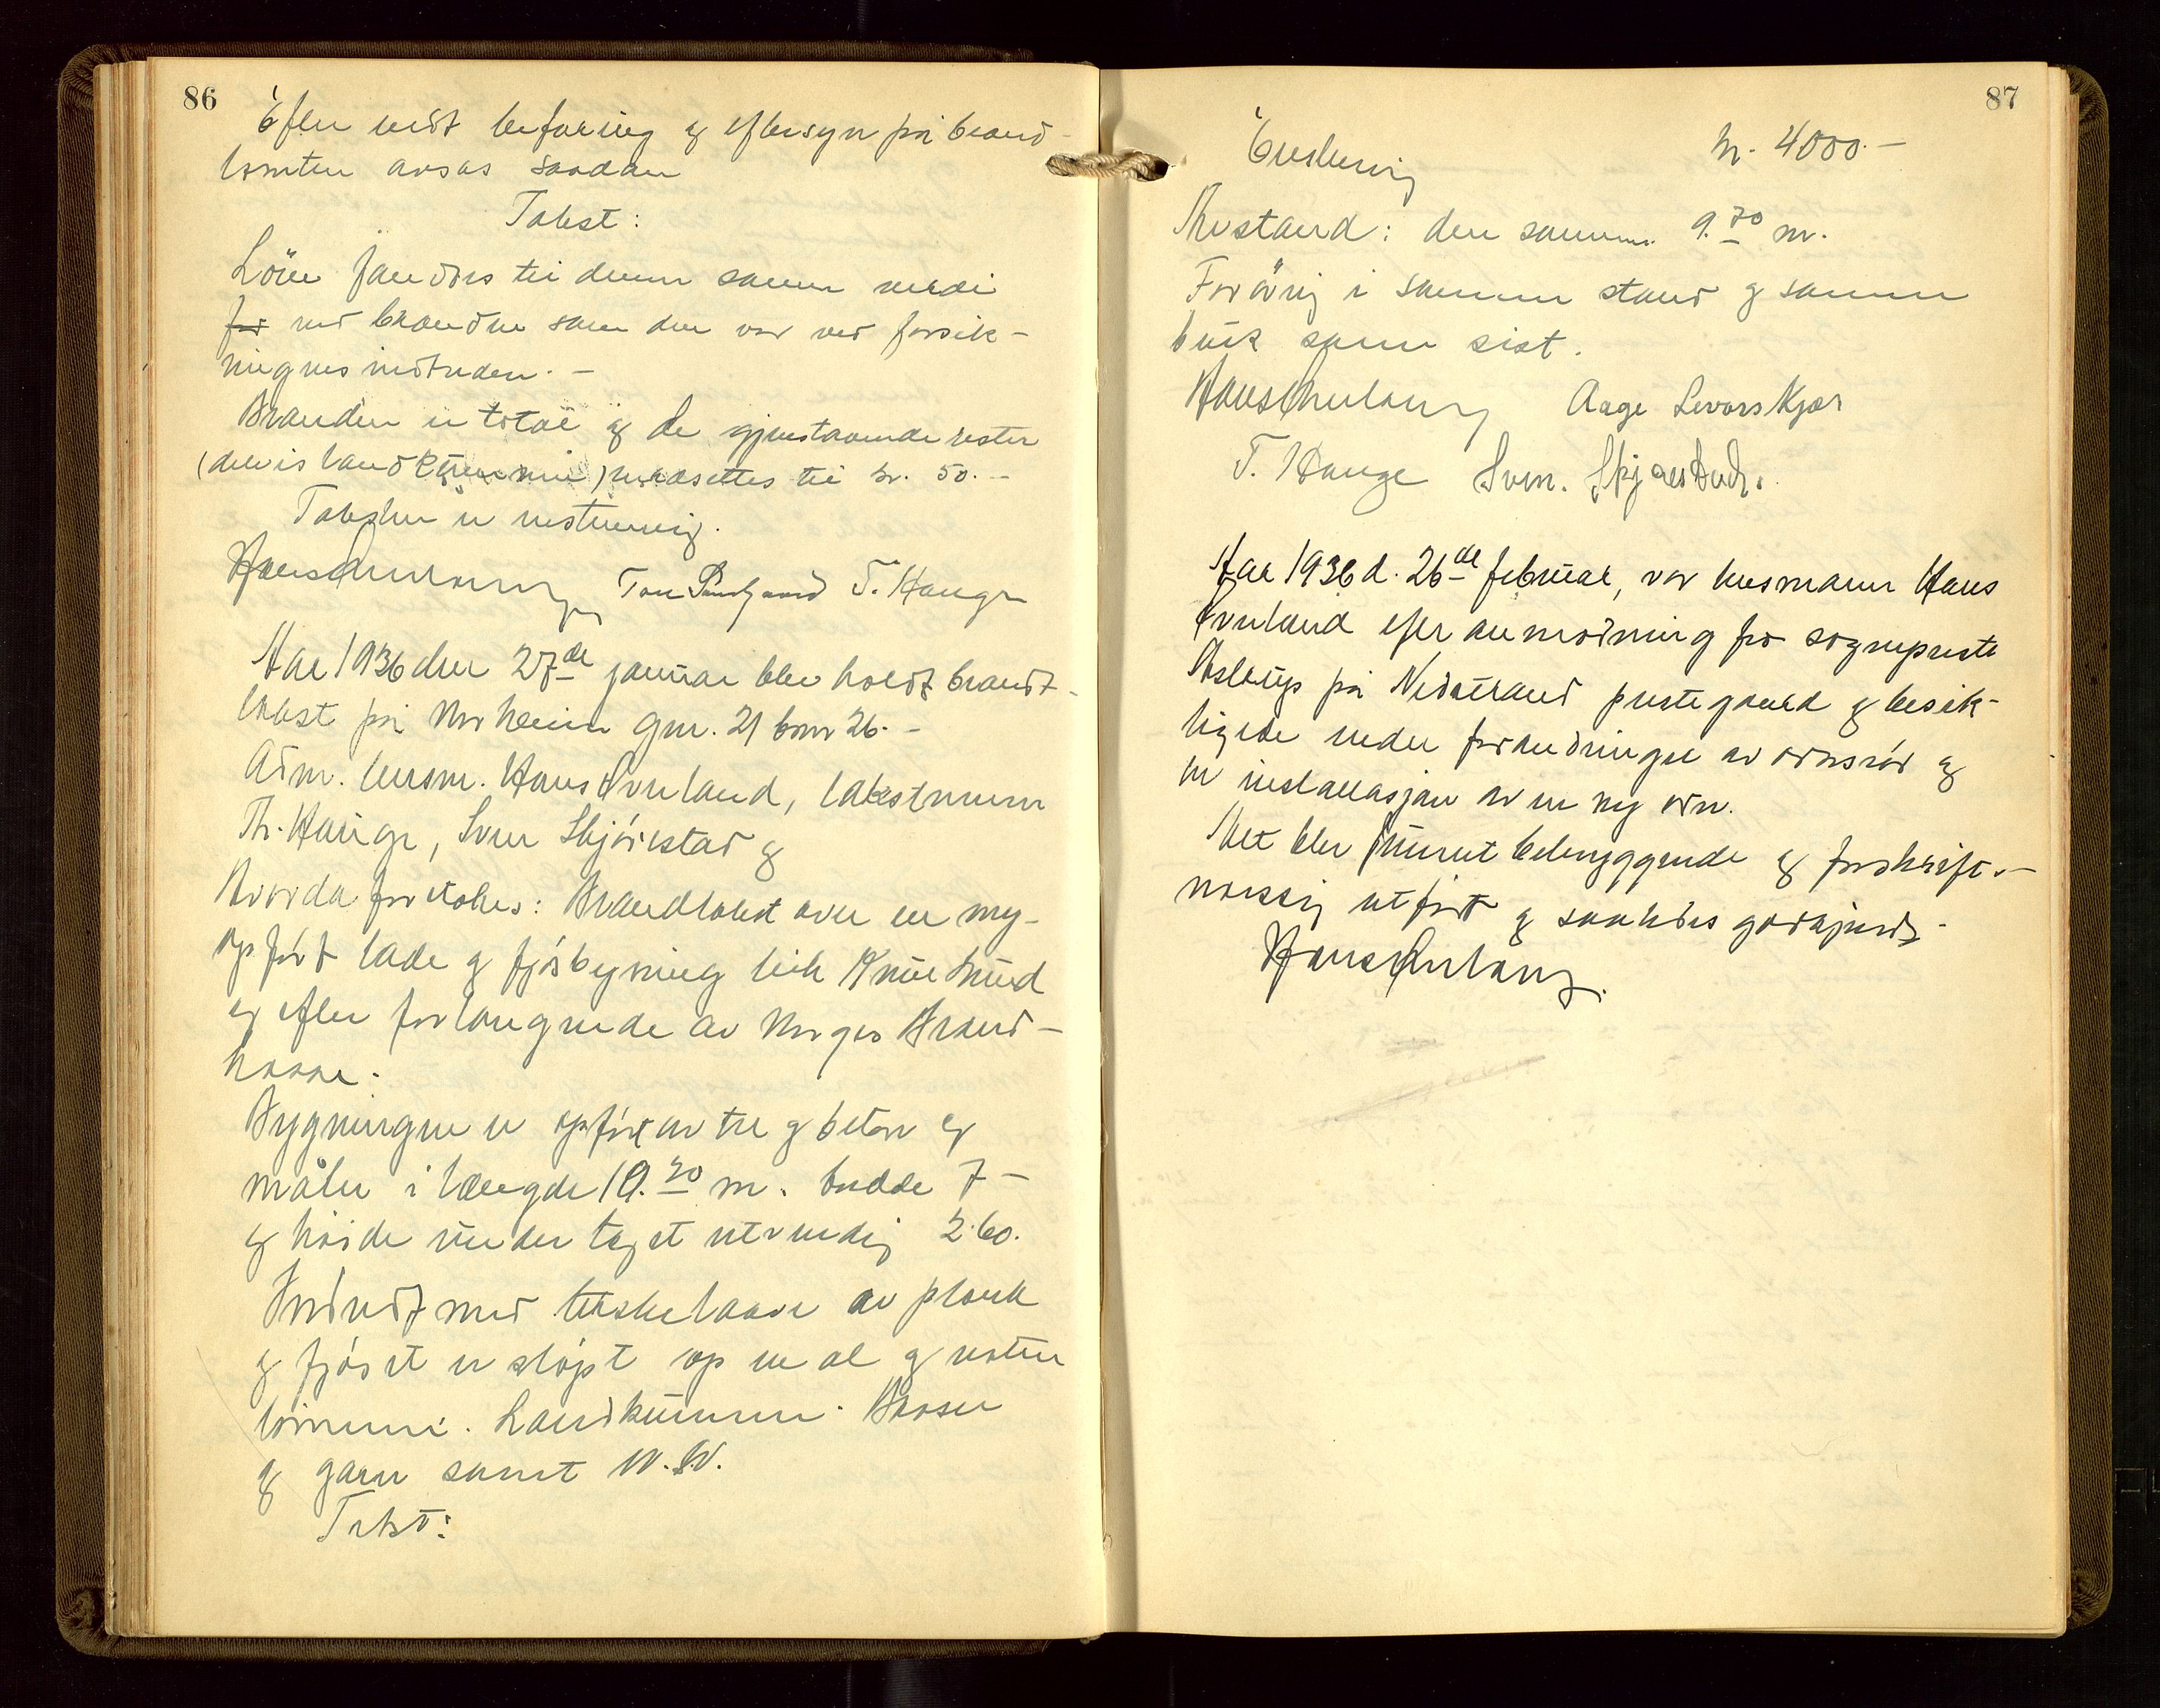 86
Efter endt befaring og eftersyn på brand-
tomten avsas saadan
Takst:
Löen fandtes til denne samme verdi
for ved branden som den var ved forsik-
ringens indtræden. -
Branden er total og de gjenstaaende rester
(delvis landkummen) værdsettes til kr. 50. -
Taksten er enstemmig.
Hans Svuland Tom T. Hauge
Aar 1936 den 27de januar blev holdt brandt-
takst på Norheim gnr. 21 bnr 26. -
Adm. lensm. Hans Svuland, takstmenn
Th. Hauge, Sven Skjörestad og
Hvorda foretokes: Brandtakst over en ny-
opfört lade og fjösbygning tilh.
og efter forlangende av Norges Brand-
kasse.
Bygningen er opfört av tre og beton og
måler i længde 19.70 m. bredde 7 -
og höide under taget utvendig 2.60.
Indredt med treskelaave av plank
og fjöset er stöpt op
Landkummen. Baaser
og garn samt W.W.
Takst:
87
Enslemmig kr. 4000. -
Avstand: den samme 9.70 m.
Forövrig i samme stand og samme
bruk som sist.
Hans Svuland Aage Levorskjær
T. Hauge Sven. Skjærestad.
Aar 1936 d. 26de februar, var lensmann Hans
Svuland efter anmodning fra sogneprest
Aslaugs på Nedstrand prestegaard og besik-
tigede nedre forandringer av ovnsrör og
en installasjon av en ny ovn.
Alt blev funnet betryggende og forskrifts-
mæssig utfört og saaledes godkjendt.
Hans Svuland.